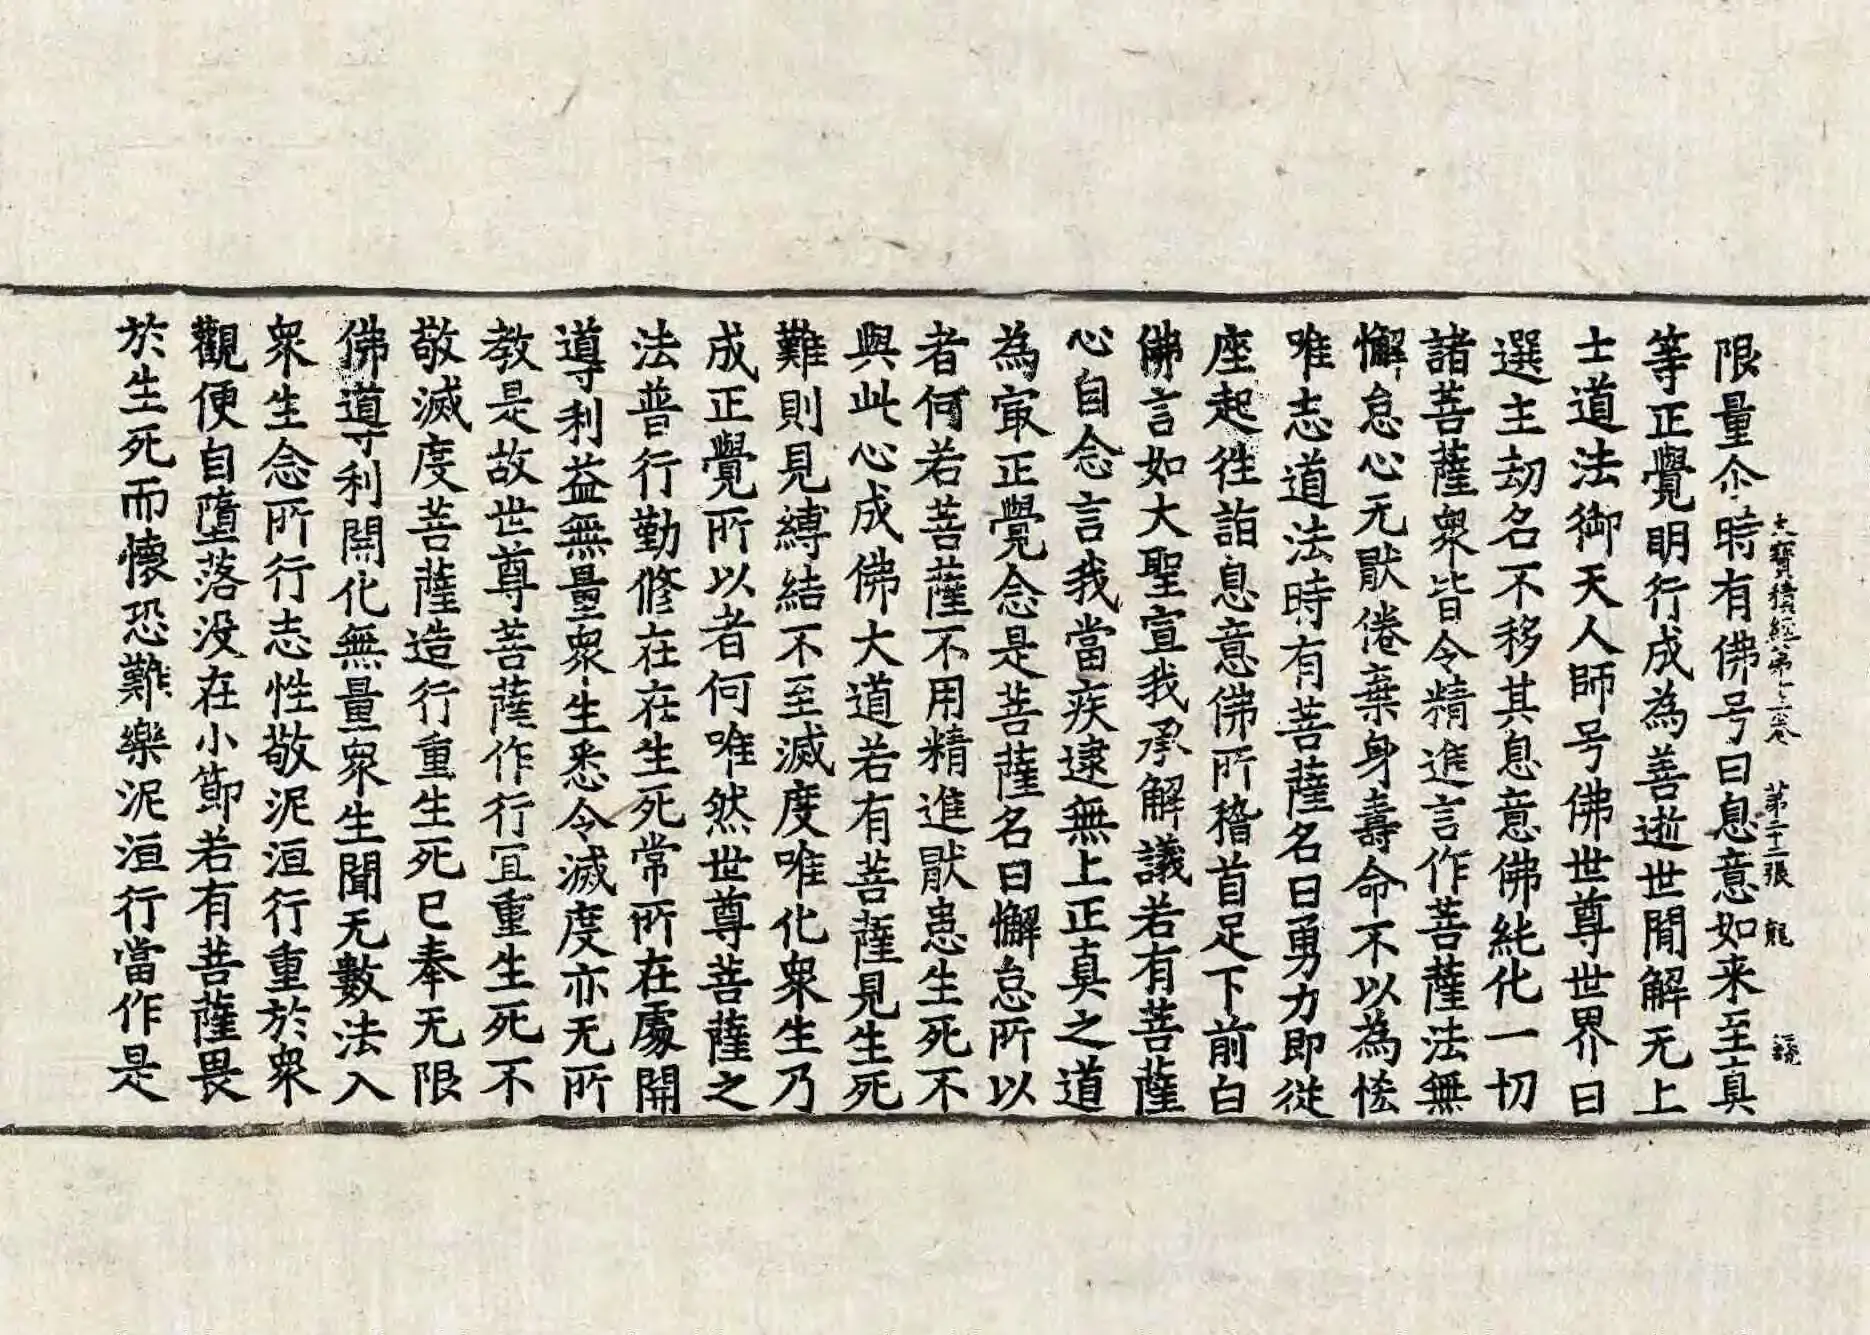 大寶積經第十三卷 第二十二張 龍
限量尒時有佛号曰息意如来至真
等正覺明行成為善逝世間解无上
士道法御天人師号佛世尊世界曰
選主劫名不移其息意佛純化一切
諸菩薩衆皆令精進言作菩薩法無
懈怠心无猒倦棄身壽命不以為恡
唯志道法時有菩薩名曰勇力即從
座起往詣息意佛所稽首足下前白
佛言如大聖宣我承解議若有菩薩
心自念言我當疾逮無上正真之道
為㝡正覺念是菩薩名曰懈怠所以
者何若菩薩不用精進猒患生死不
與此心成佛大道若有菩薩見生死
難則見縛結不至滅度唯化衆生乃
成正覺所以者何唯然世尊菩薩之
法普行勤修在在生死常所在處開
導利益無量衆生悉令滅度亦无所
教是故世尊菩薩作行宜重生死不
敬滅度菩薩造行重生死已奉无限
佛道导利開化無量衆生聞无數法入
衆生念所行志性敬泥洹行重於衆
觀便自墮落没在小節若有菩薩畏
於生死而懷恐難樂泥洹行當作是